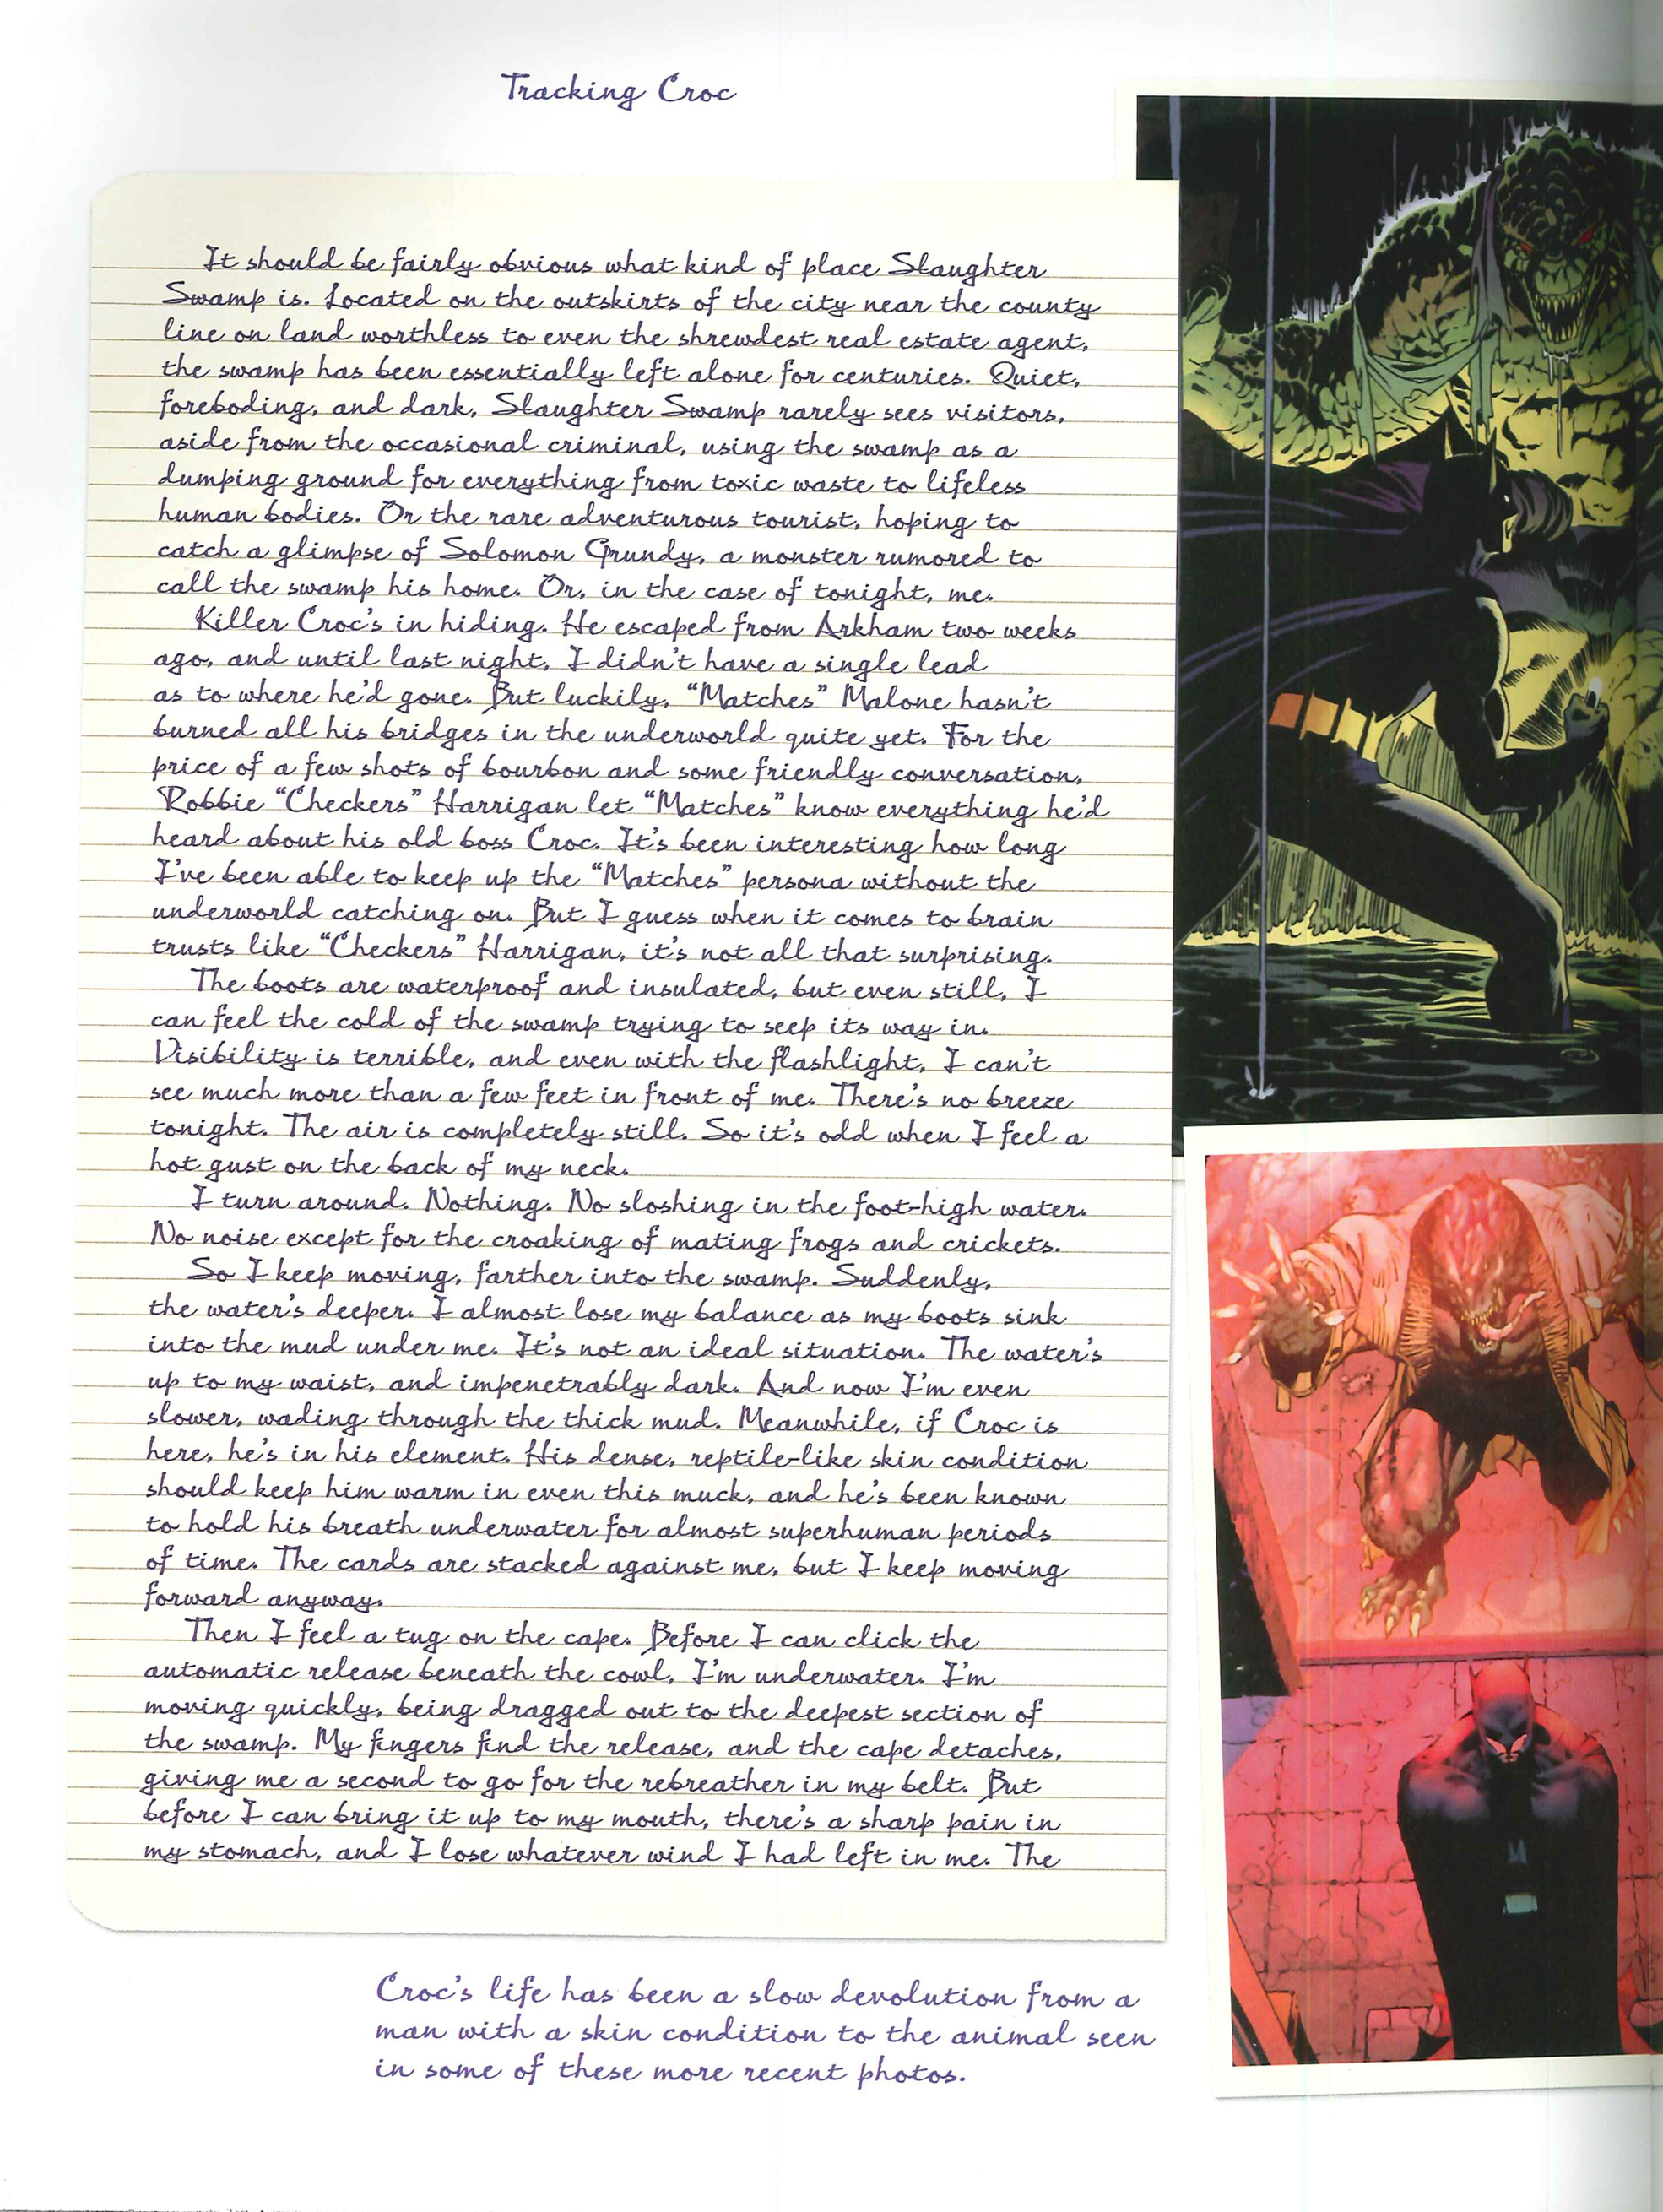 Tracking Croc
It should be fairly obvious what kind of place Slaughter
Swamp is. Located on the outskirts of the city near the county
line on land worthless to even the shrewdest real estate agent,
the swamp has been essentially left alone for centuries. Quiet,
foreboding, and dark, Slaughter Swamp rarely sees visitors,
aside from the occasional criminal, using the swamp as a
dumping ground for everything from toxic waste to lifeless
human bodies. Or the rare adventurous tourist, hoping to
catch a glimpse of Solomon Grundy, a monster rumored to
call the swamp his home. Or, in the case of tonight, me.
Killer Croc's in hiding. He escaped from Arkham two weeks
ago, and until last night, I didn't have a single lead
as to where he'd gone. But luckily, “Matches” Malone hasn't
burned all his bridges in the underworld quite yet. For the
price of a few shots of bourbon and some friendly conversation,
Robbie “Checkers” Harrigan let “Matches” know everything he'd
heard about his old boss Croc. It's been interesting how long
I've been able to keep up the “Matches” persona without the
underworld catching on. But I guess when it comes to brain
trusts like “Checkers” Harrigan, it's not all that surprising.
The boots are waterproof and insulated, but even still, I
can feel the cold of the swamp trying to seep its way in.
Visibility is terrible, and even with the flashlight, I can't
see much more than a few feet in front of me. There's no breeze
tonight. The air is completely still. So it's odd when I feel a
hot gust on the back of my neck.
I turn around. Nothing. No sloshing in the foot-high water.
No noise except for the croaking of mating frogs and crickets.
So I keep moving, farther into the swamp. Suddenly,
the water's deeper. I almost lose my balance as my boots sink
into the mud under me. It's not an ideal situation. The water's
up to my waist, and impenetrably dark. And now I'm even
slower, wading through the thick mud. Meanwhile, if Croc is
here, he's in his element. His dense, reptile-like skin condition
should keep him warm in even this muck, and he's been known
to hold his breath underwater for almost superhuman periods
of time. The cards are stacked against me, but I keep moving
forward anyway.
Then I feel a tug on the cape. Before I can click the
automatic release beneath the cowl, I'm underwater. I'm
moving quickly, being dragged out to the deepest section of
the swamp. My fingers find the release, and the cape detaches,
giving me a second to go for the rebreather in my belt. But
before I can bring it up to my mouth, there's a sharp pain in
my stomach, and I lose whatever wind I had left in me. The
Croc's life has been a slow devolution from a
man with a skin condition to the animal seen
in some of these more recent photos.